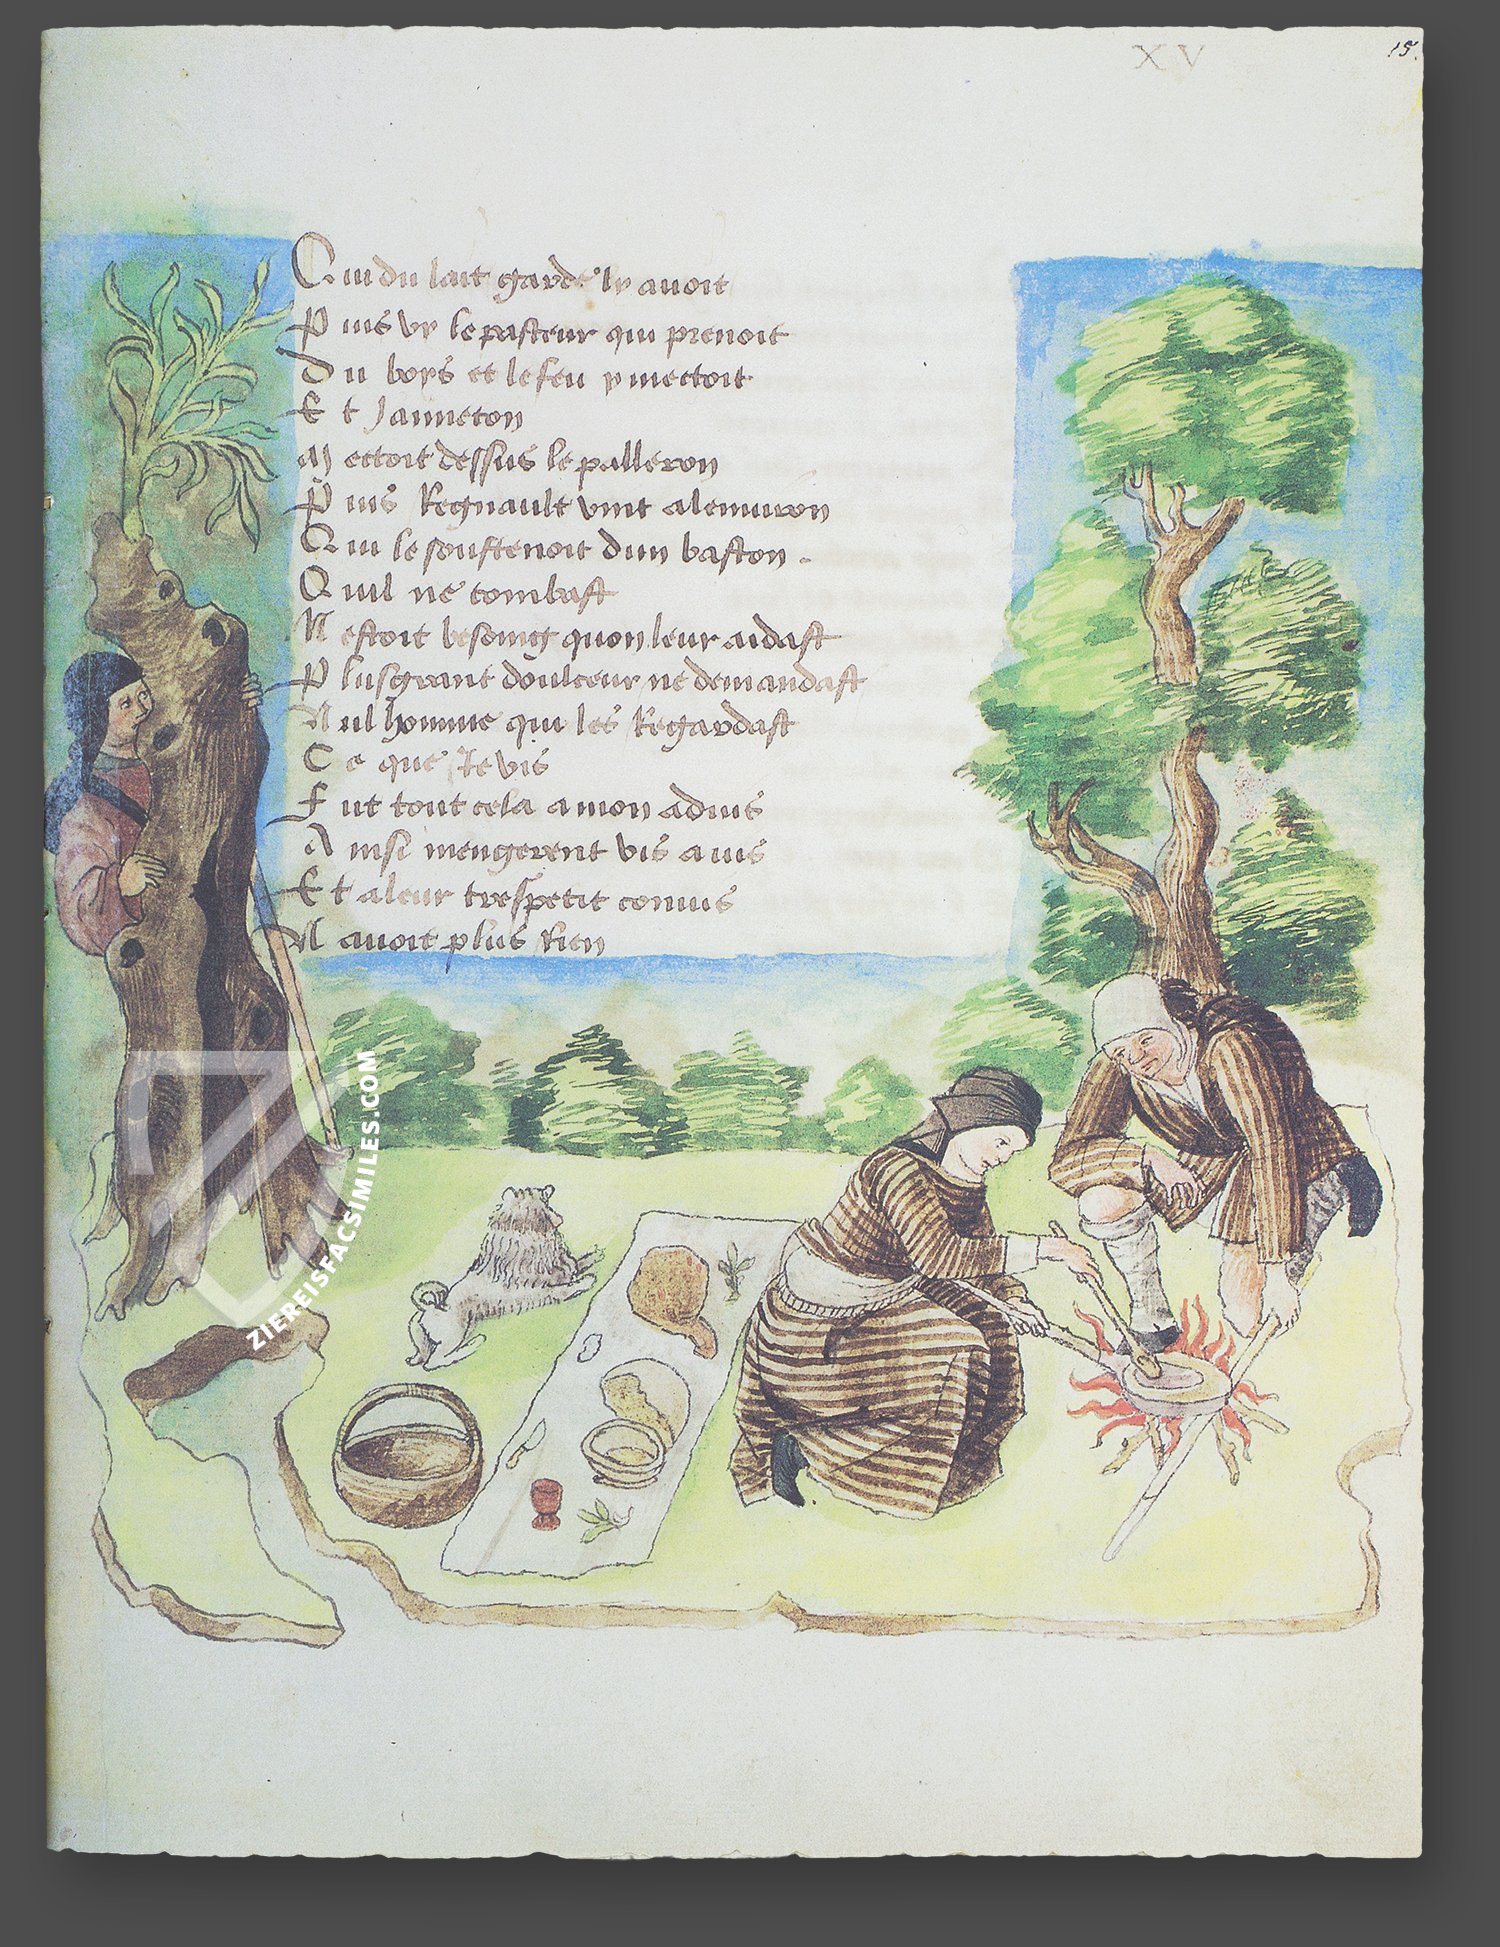 XV
15.
Qui du lait garde ly avoit
Puis vy le pasteur qui prenoit
Du boys et le feu y mectoit
Et Janneton
Mectoit dessus le palleron
Puis Regnault vint alemuron
Qui le soustenoit dun baston.
Quil ne tombast
Nestoit besoing quon leur aidast
Plusgrant doulceur ne demandast
Nul homme qui les Regardast
Ce que Je vis
Fut tout cela a mon advis
Ainsi mengerent vis a vis
Et a leur trespetit convis
N avoit plus Rien
ZIEREISFACSIMILES.COM